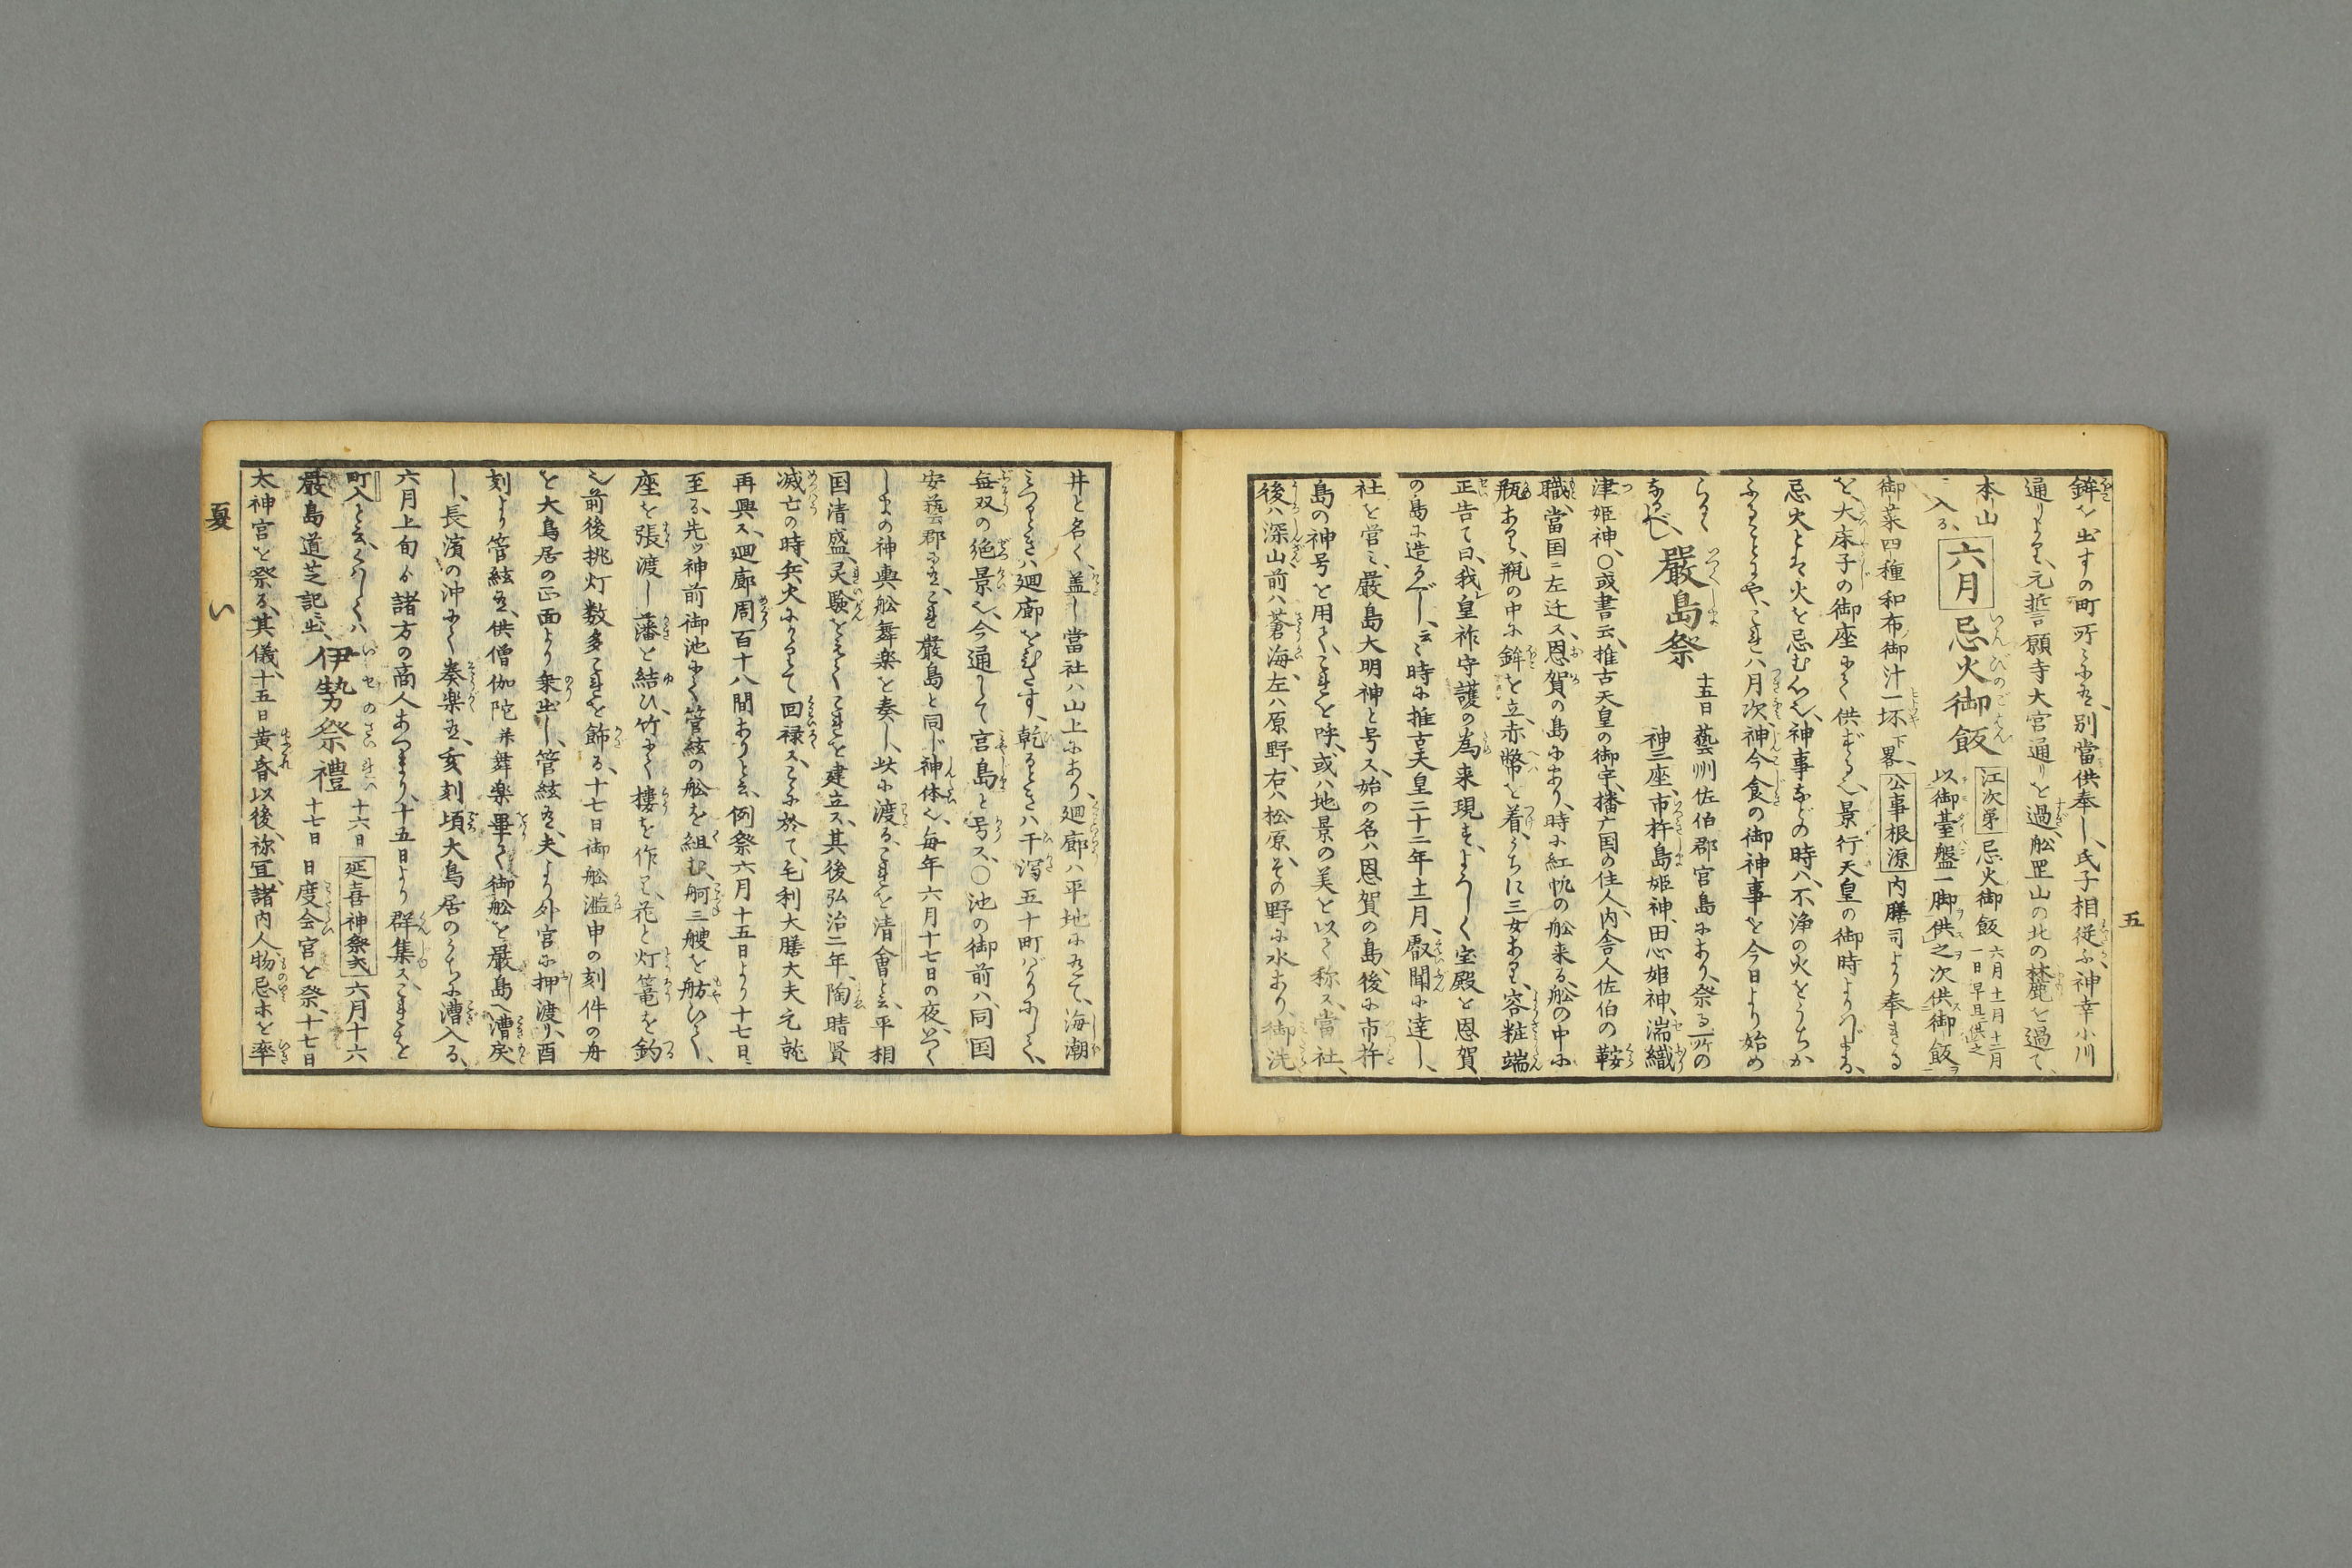 鉾を出すの町所々に有、別當供奉し、氏子相従ふ、神幸小川
通りより、元誓願寺大宮通りを過、舩罡山の北の麓を過て、
本山
ニ入る、
六月
忌火御飯
江次第
忌火御飯
六月十一月十二月
一日早旦供之
以御䑓盤一脚供之次供御飯
御菜四種和布御汁一坏下畧、公事根源内膳司より奉る
を、大床子の御座にて供ずる也、景行天皇の御時よりはじまる、
忌火とは火を忌む心也、神事などの時ハ、不浄の火をうちか
ふることにや、これハ月次、神今食の御神事を今日より始め
らるゝ
なるべし、
嚴島祭
十五日
藝州佐伯郡宮島にあり、祭る所の
神三座、市杵島姫神、田心姫神、湍織
津姫神、〇或書云、推古天皇の御宇、播广国の住人、内舎人佐伯の鞍
職、當国ニ左迁ス、恩賀の島にあり、時に紅帆の舩来る、舩の中に
瓶あり、瓶の中に鉾を立、赤幣を着、うちに三女あり、容粧端
正告て曰、我皇祚守護の為来現す、よろしく宝殿を恩賀
の島に造るべし、云々時に推古天皇二十二年十二月、叡聞に達し、
社を営ミ、嚴島大明神と号ス、始の名ハ恩賀の島、後に市杵
島の神号を用て、これを呼、或ハ地景の美を以て称ス、當社、
後ハ深山前ハ蒼海、左ハ原野、右ハ松原、その野に水あり、御洗
五
井と名く、盖し當社ハ山上にあり、廻廊ハ平地に有て、海潮
みつるときハ廻廊をひたす、乾るときハ干泻五十町ばかりにして、
毎双の絶景也、今通して宮島と号ス、〇池の御前ハ、同国
安藝郡に有、これ嚴島と同じ神体也、毎年六月十七日の夜、いつく
しまの神輿舩舞楽を奏し、此に渡る、これを清會と云、平相
国清盛、灵驗をえてこれを建立ス、其後弘治二年、陶晴賢
滅亡の時、兵火にかゝりて回禄ス、こゝに於て、毛利大膳大夫元就
再興ス、廻廊周百十八間ありと云、例祭六月十五日より十七日ニ
至る、先ツ神前御池にて管絃の舩を組む、舸三艘を舫ひて、
座を張渡し藩を結ひ、竹にて樓を作り、花と灯篭を釣
也前後挑灯数多これを飾る、十七日御舩濫申の刻件の舟
を大鳥居の正面より乗出し、管絃有、夫より外宮に押渡り、酉
刻より管絃有、供僧伽陀并舞楽畢て御舩を嚴島へ漕戻
し、長濱の沖にて奏楽有、亥刻頃大鳥居のうちに漕入る、
六月上旬ゟ諸方の商人あつまり、十五日より群集ス、これをを
町入と云、くハしくハ
嚴島道芝記ニ云、
伊㔟祭禮
十六日
十七日
延喜神祭式六月十六
日度会宮を祭、十七日
太神宮を祭る、其儀、十五日黄昏以後、祢宜、諸内人、物忌ホを率
夏
い